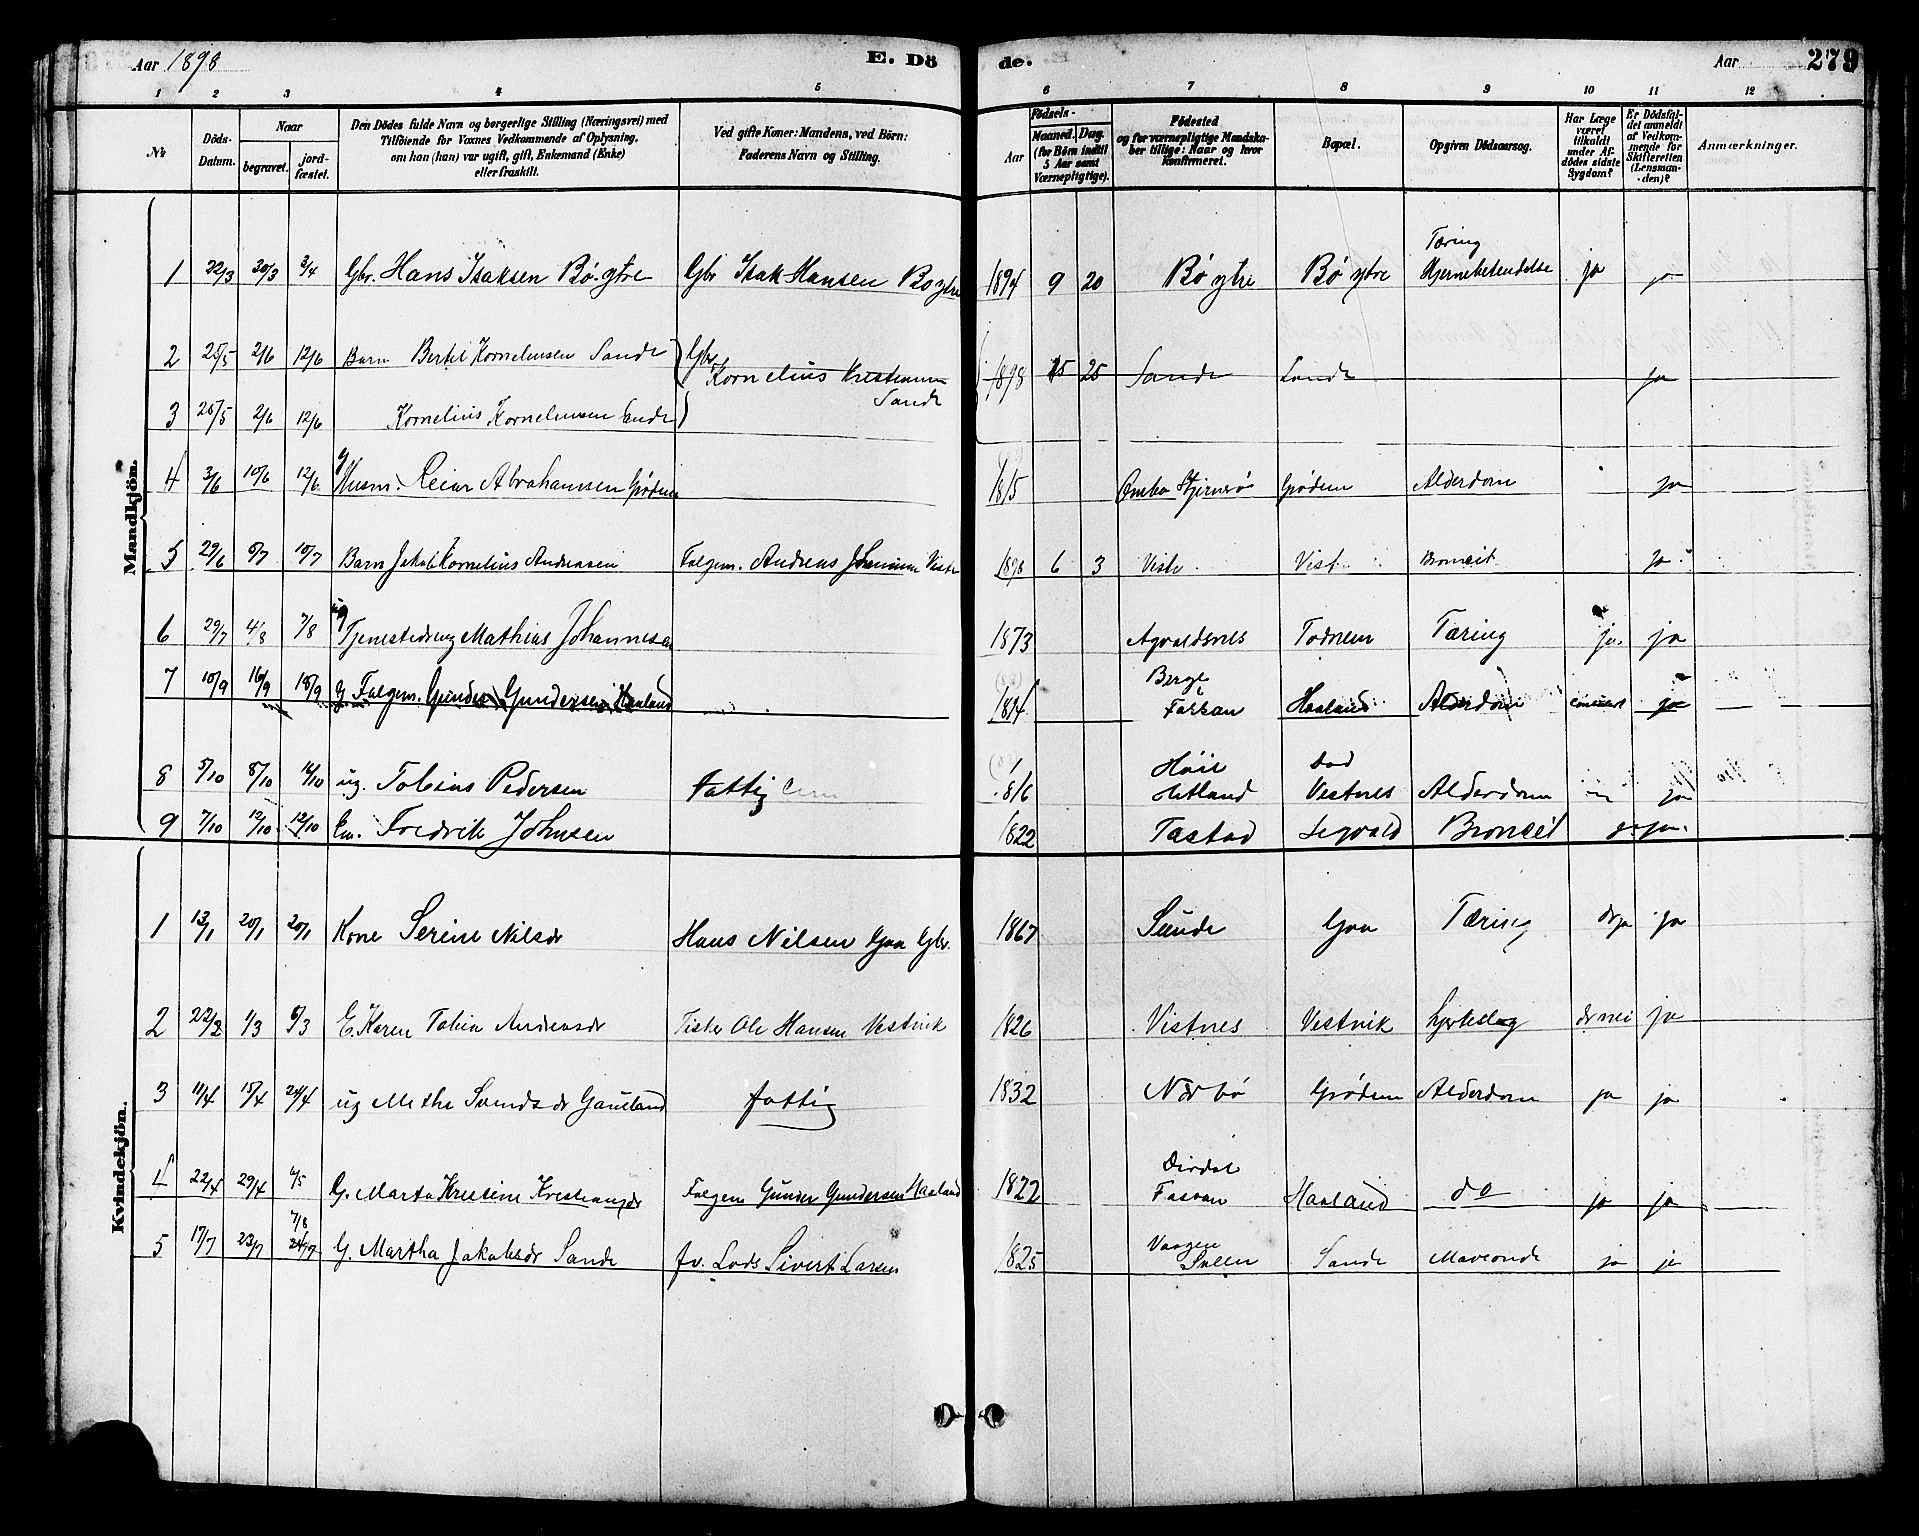 Aar 1898 E. Dö de. Aar 279
1 2 3 4 5 6 7 8 9 10 11 12
No
Döds-Datum.
Naar
begravet.
jord-fæstet.
Den Dödes fulde Navn og borgerlige Stilling (Næringsvei) med
Tilföiende for Voxnes Vedkommende af Oplysning,
om han (hun) var ugift, gift, Enkemand (Enke)
eller fraskilt.
Ved gifte Koner: Mandens, ved Börn:
Faderens Navn og Stilling.
Födsels-
Aar
Maaned. Dag.
(for Börn indtil
5 Aar samt
Værnepligtige).
Födested
og for værnepligtige Mandska-
ber tillige: Naar og hvor
konfirmeret.
Bopæl.
Opgiven Dödsaarsag.
Har Læge
været
tilkaldt
under Af-
dödes sidste
Sygdom?
Er Dödsfal-
det anmeldt
af Vedkom-
mende for
Skifteretten
(Lensman-
den)?
Anmærkninger.
Mandkjön.
1 22/3 30/3 3/4 Gbr. Hans Isaksen Bø. ytre Gbr Isak Hansen Bø ytre 1894 9 20 Bø ytre Bø ytre Tæring Hjernebetendelse ja ja
2 25/5 2/6 12/6 Barn Bertel Kornelensen Sande Gbr Kornelius Sande 1898 5 25 Sande Sande ja
3 25/5 2/6 12/6 Kornelius Kornelensen Sande
4 3/6 10/6 12/6 g Husm. Reier Abrahamsen Grødem 1815 Ombo Stjernerø Grødem Alderdom ja
5 29/6 6/7 10/7 Barn Jakob Kornelius Andreasen Folgem. Andreas Viste 1898 6 3 Viste Viste Broncit ja
6 29/7 4/8 7/8 ug Tjenestedreng Mathias Johannesen 1873 Agvaldsnes Todnem Tæring ja ja
7 10/9 16/9 18/9 g. Folgem. Gunder Gundersen Haaland 1814 Berge Fossan Haaland Alderdom ja
8 5/10 8/10 16/10 ug. Tobias Pedersen Fattig 1816 Høile Hetland Vestnes Alderdom ja
9 7/10 12/10 12/10 Em. Fredrik Johnsen 1822 Tastad Legvold Broncit ja ja
Kvindekjön.
1 13/1 20/1 20/1 Kone Serine Nilsdr Hans Nilsen Goa Gbr. 1867 Sunde Goa Tæring ja ja
2 22/2 1/3 6/3 E. Karen Tobia Andreasdr Fisker Ole Hansen Vestvik 1826 Vistnes Vestvik Hjerteslag nei ja
3 11/4 15/4 24/4 ug Methe Svendsdr Gauland fattig 1832 Nærbø Grødem Alderdom ja ja
4 22/4 29/4 1/5 G. Marta Kristine Kristiansdr Folgem Gunder Gundersen Haaland 1822 Dirdal Fossan Haaland do ja ja
5 17/7 23/7 7/8 24/7 G. Martha Jakobsdr Sande fv. Lods Sivert Larsen 1825 Vaagen Sande Maveonde ja ja